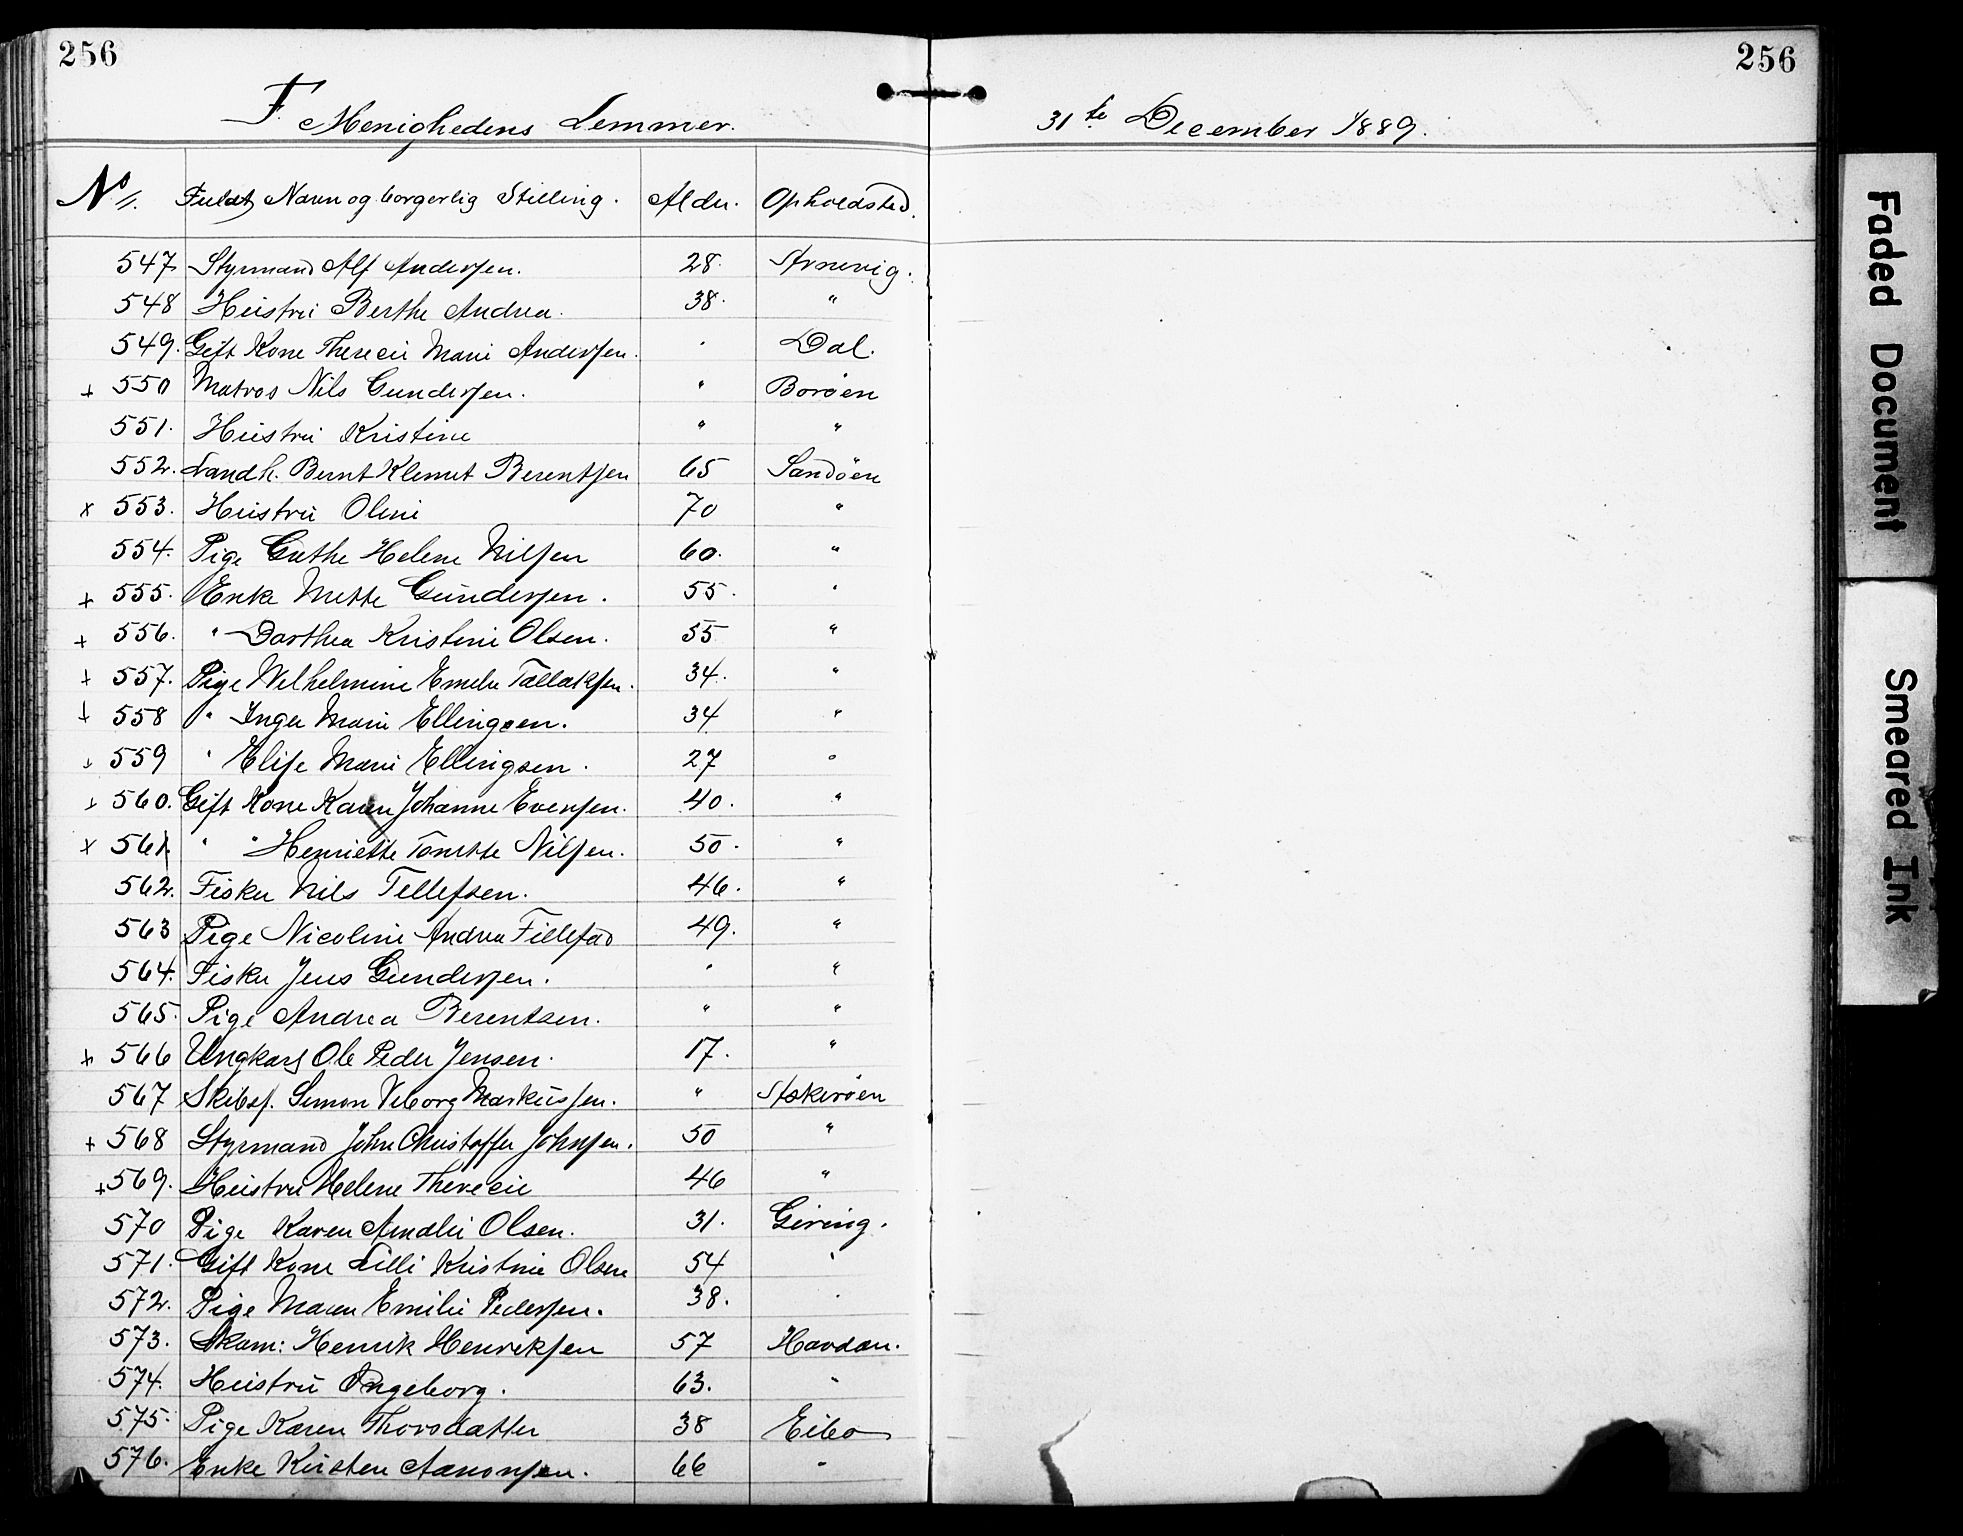 256
256
F. Menighedens Lemmer. 31te December 1889.
No. Fuldt Navn og borgerlig Stilling. Alder. Opholdsted.
547. Styrmand Alf Andersen. 28. Arnevig.
548 Hustru Berthe Andrea. 38. "
549. Gift Kone Therecie Marie Andersen. " Dal.
+ 550 Matros Nils Gundersen. " Borøen
551. Hustru Kristine " "
552. Landh. Bernt Klemet Berentsen 65 Sandøen
x 553. Hustru Oline 70 "
554. Pige Guthe Helene Nilsen 60. "
+ 555. Enke Mette Gundersen. 55. "
+ 556. " Dorthea Kristine Olsen. 55 "
+ 557. Pige Wilhelmine Emelie Tallaksen. 34. "
+ 558 " Inger Marie Ellingsen. 34 "
+ 559 " Elise Marie Ellingsen. 27 "
+ 560. Gift Kone Karen Johanne Evensen. 40. "
x 561. " " Henriette Tomette Nilsen. 50. "
562. Fisker Nils Tellefsen. 46. "
563 Pige Nicoline Andrea 49. "
564. Fisker Jens Gundersen. " "
565. Pige Andrea Berentsen. " "
+ 566 Ungkarl Ole Peder Jensen. 17. "
567 Skibsf. Simon Viborg Markussen. " Stokerøen
+ 568 Styrmand John Christoffer Johnsen. 50 "
+ 569. Hustru Helene Therecie 46 "
570 Pige Karen Amalie Olsen. 31. Geving.
571. Gift Kone Lilli Kristine Olsen 54 "
572. Pige Maren Emilie Pedersen. 38. "
573. Skom: Henrik Henriksen 57 Havdan.
574. Hustru Ingeborg. 63. "
575. Pige Karen Thorsdatter 38 Eibo
576. Enke Kirsten Aanonsen. 66 "
Faded Document
Smeared Ink